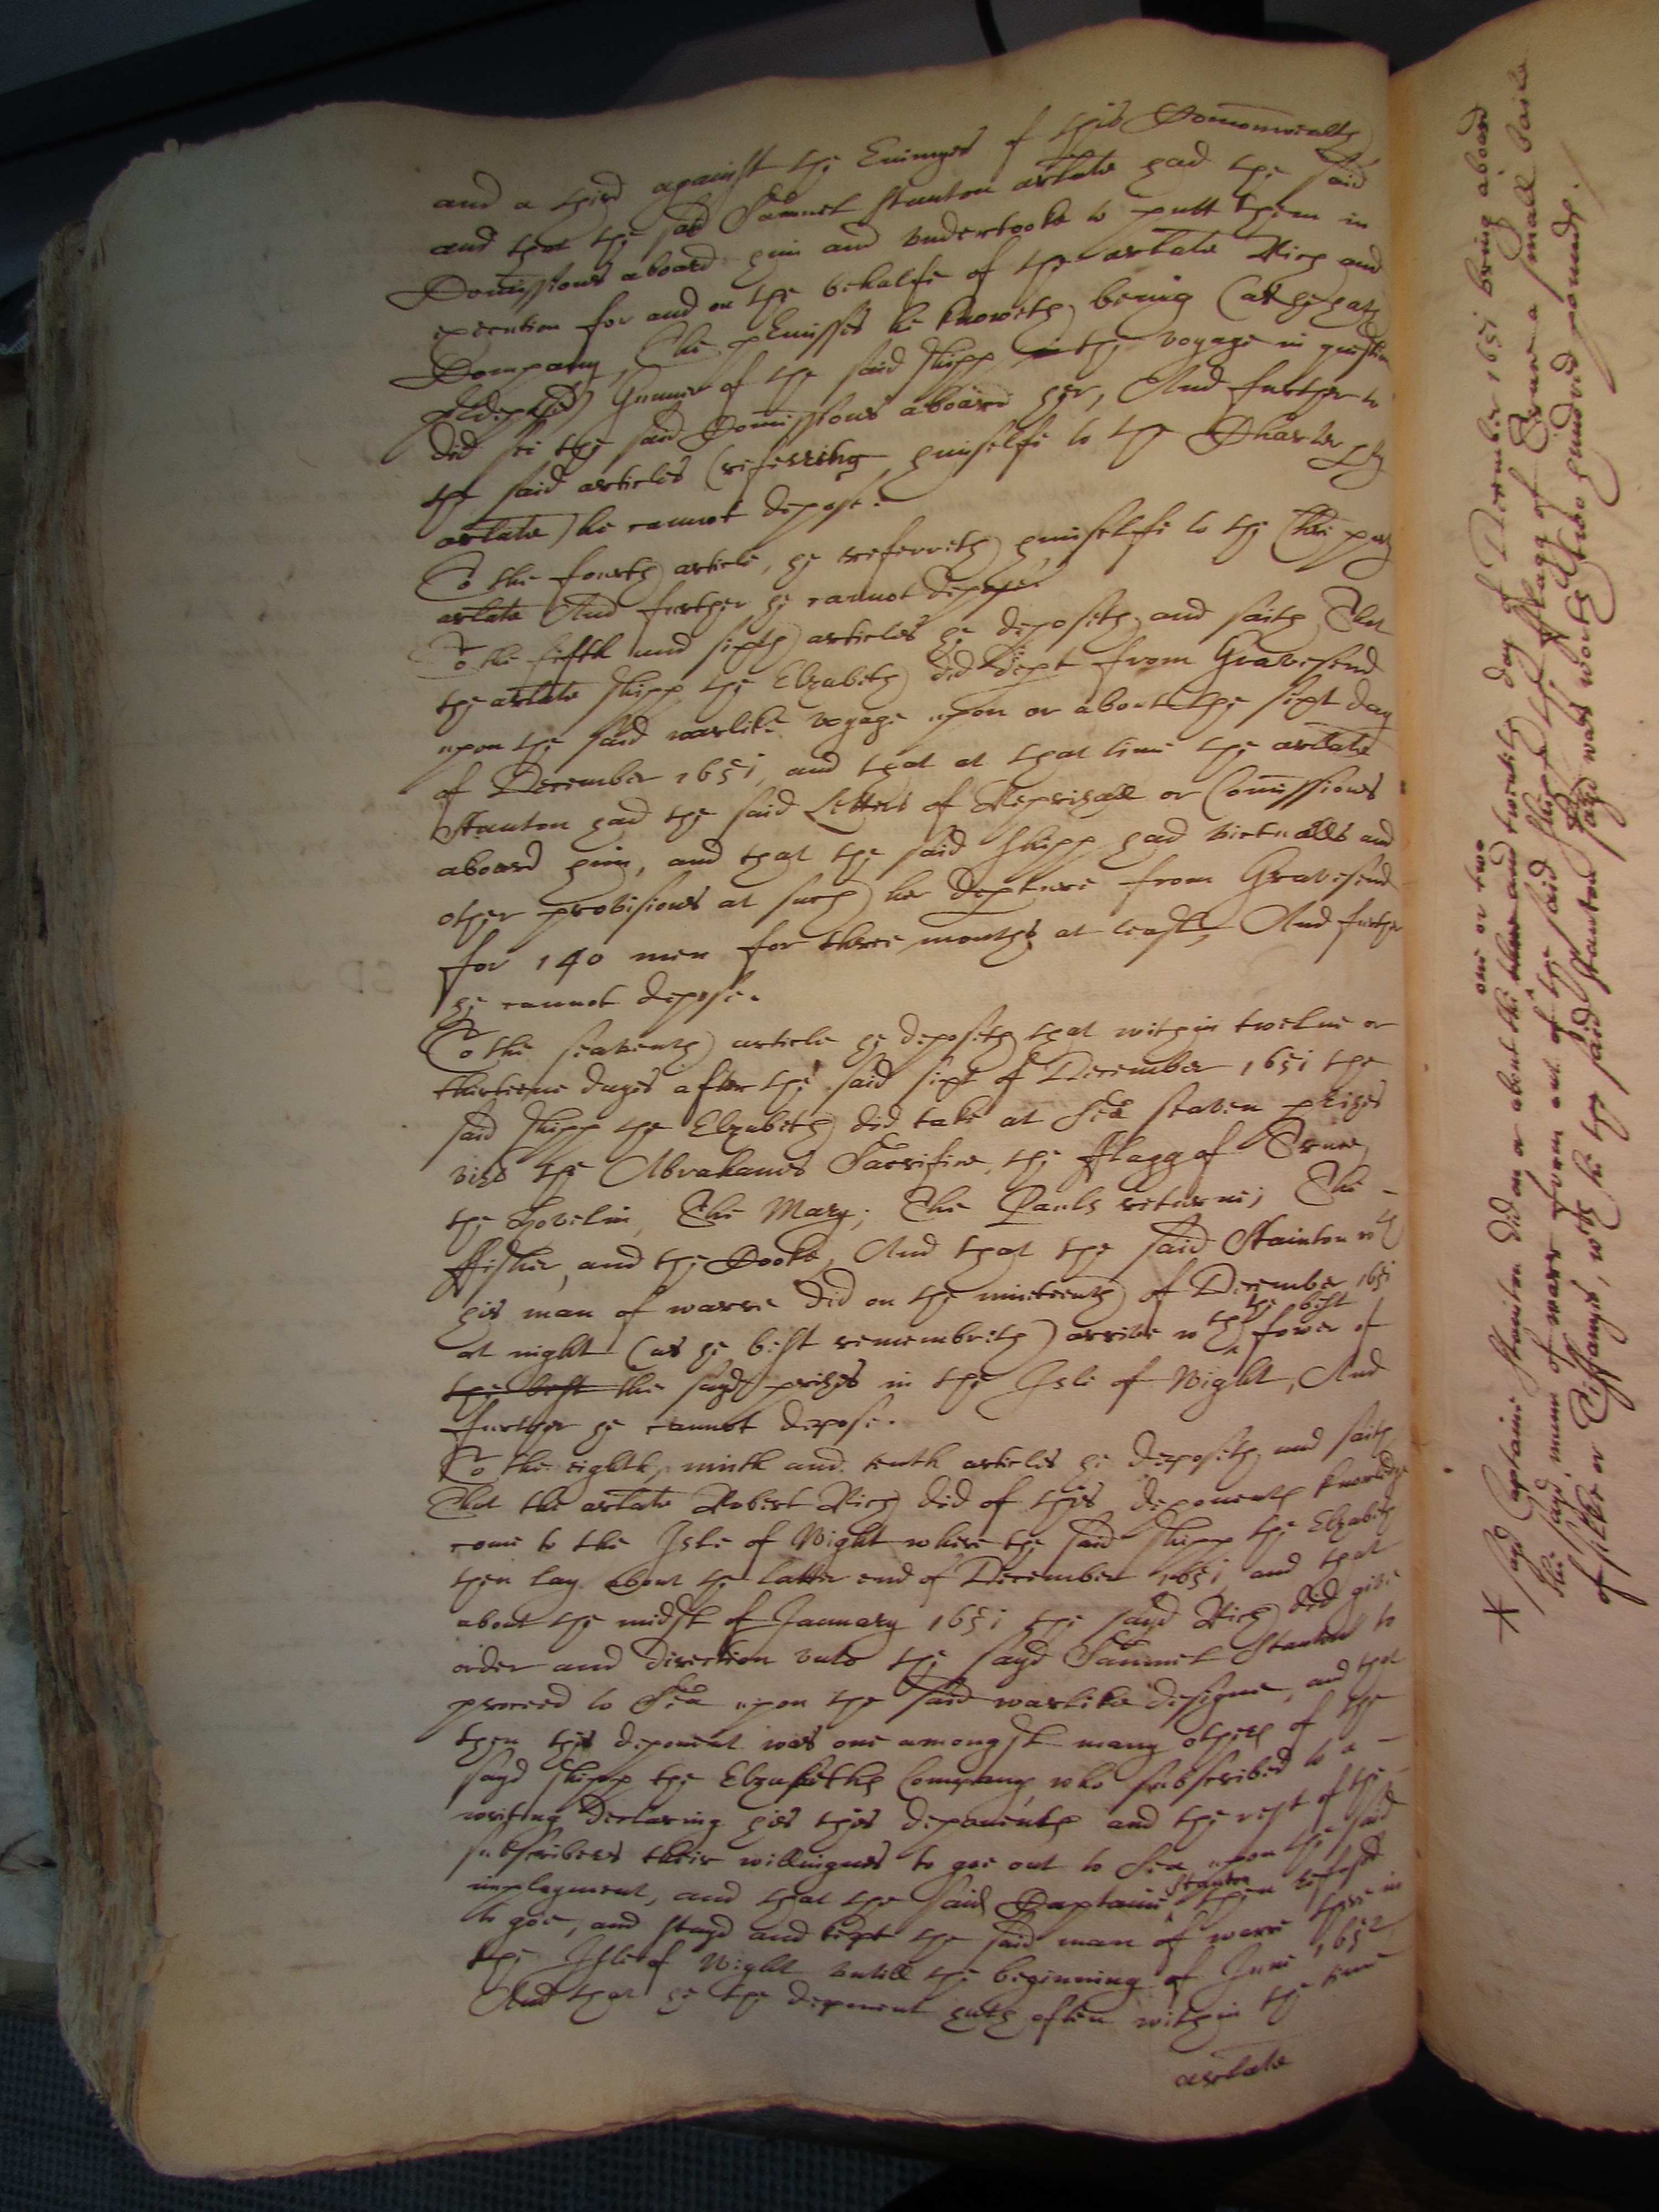 and a third against the Enimyes of this Comonwealth
and that the sad Samuel Stanton arlate had the said
Comissions aboard him and undertooke to putt them in
execution for and on the behalfe of the arlate Rich and
Company, The pmisses he knoweth being (as he hath
pdeposed) Gunner of the said shipp in the voyage in question
did see the said Comissions aboard her, And further to
the said articles (referring himselfe to the Charter pty
arlate) he cannot depose.
To the fourth article, he referreth himselfe to the Chre pty
arlate And further he cannot depose.
To the fifth and sixth articles he deposeth and saith That
the arlate shipp the Elzabeth did dept from Gravesend
upon the said warlike voyage upon or about the sixt day
of December 1651, and that at that time the arlate
Stanton had the said Letters of Reprizall or Comissions
aboard him, and that the said shipp had victualls and
other provisions at such her depture from Gravesend
for 140 men for three months at least, And further
he cannot depose.
To the seaventh article he deposeth that within twelue or
thirteene dayes after the said sixt of December 1651 the
said shipp the Elzabeth did take at Sea seaven prizes
vizt the Abrahams Sacrifice, the fflagg of Truce,
the Hovelin, The Mary; The Pauls returne; The
ffisher, and the Cooke, And that the said Stainton wth
his man of warre did on the nineteenth of December 1651
at night (as he best remembreth) arrive wth the best fower of
the best the sayd prizes in the Isle of Wight, And
further he cannot depose.
To the eighth, ninth and tenth articles he deposeth and saith
That the arlate Robert Rich did of this deponents knowledge
come to the Isle of Wight where the said shipp the Elzabeth
then lay about the latter end of December 1651 and that
about the midst of January 1651 the sayd Rich did give
order and direction unto the sayd Samuel Stanton to
proceed to Sea upon the said warlike designe, and that
then this deponent was one amongst many others of the
sayd shipp the Elzabeths Company who subscribed to a
writing declaring his this deponents and the rest of the
subscribers their willingnes to goe out to Sea upon the said
imployment, and that the said Captaine Stanton then refused
to goe, and stayd and kept the said man of warre there in
the Isle of Wight untill the beginning of June 1652
And that he the deponent hath often within the time
arlate
* sayd Captaine Stainton did on or about the three and one or two twentith day of December 1651 bring aboard
the sayd man of warr from out of the said shipp the fflagg of Truce a small baile
of silke or Tiffanyes, wch he the said Stanton sayd was worth two hundred pounds.